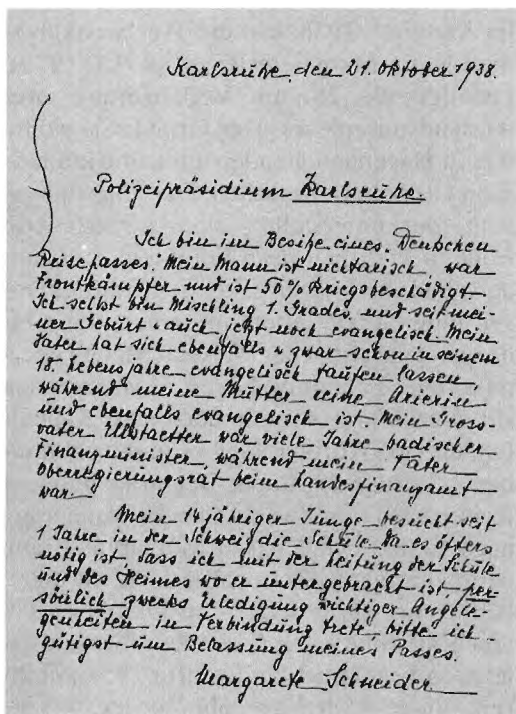 Karlsruhe, den 21. Oktober 1938.
Polizeipräsidium Karlsruhe.
Ich bin im Besitze eines Deutschen
Reisepasses. Mein Mann ist nichtarisch, war
Frontkämpfer und ist 50% kriegsbeschädigt.
Ich selbst bin Mischling 1. Grades, und seit mei-
ner Geburt u. auch jetzt noch evangelisch. Mein
Vater hat sich ebenfalls u. zwar schon in seinem
18. Lebensjahre evangelisch taufen lassen,
während meine Mutter reine Arierin
und ebenfalls evangelisch ist. Mein Gross-
vater Ellstaetter war viele Jahre badischer
Finanzminister, während mein Vater
Oberregierungsrat beim Landesfinanzamt
war.
Mein 14 jähriger Junge besucht seit
1 Jahre in der Schweiz die Schule. Da es öfters
nötig ist, dass ich mit der Leitung der Schule
und des Heimes wo er untergebracht ist per-
sönlich zwecks Erledigung wichtiger Angele-
genheiten in Verbindung trete, bitte ich
gütigst um Belassung meines Passes.
Margarete Schneider